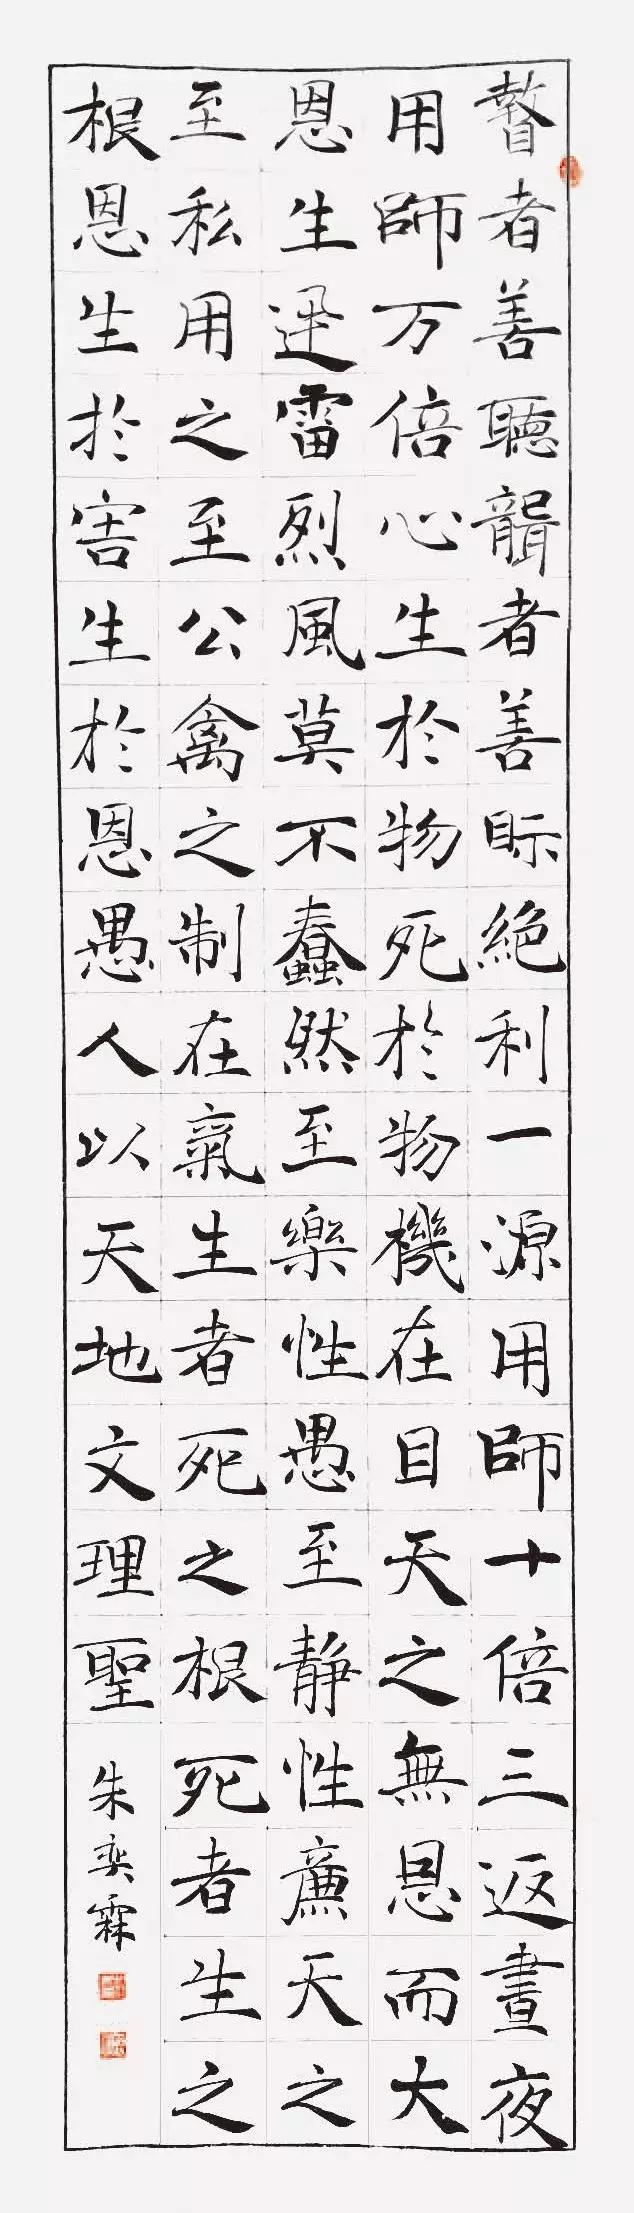 瞽者善聽聾者善眎絶利一源用師十倍三返晝夜
用師万倍心生於物死於物機在目天之無恩而大
恩生迅雷烈風莫不蠢然至樂性愚至静性廉天之
至私用之至公禽之制在氣生者死之根死者生之
根恩生於害害生於恩愚人以天地文理聖
朱奕霖